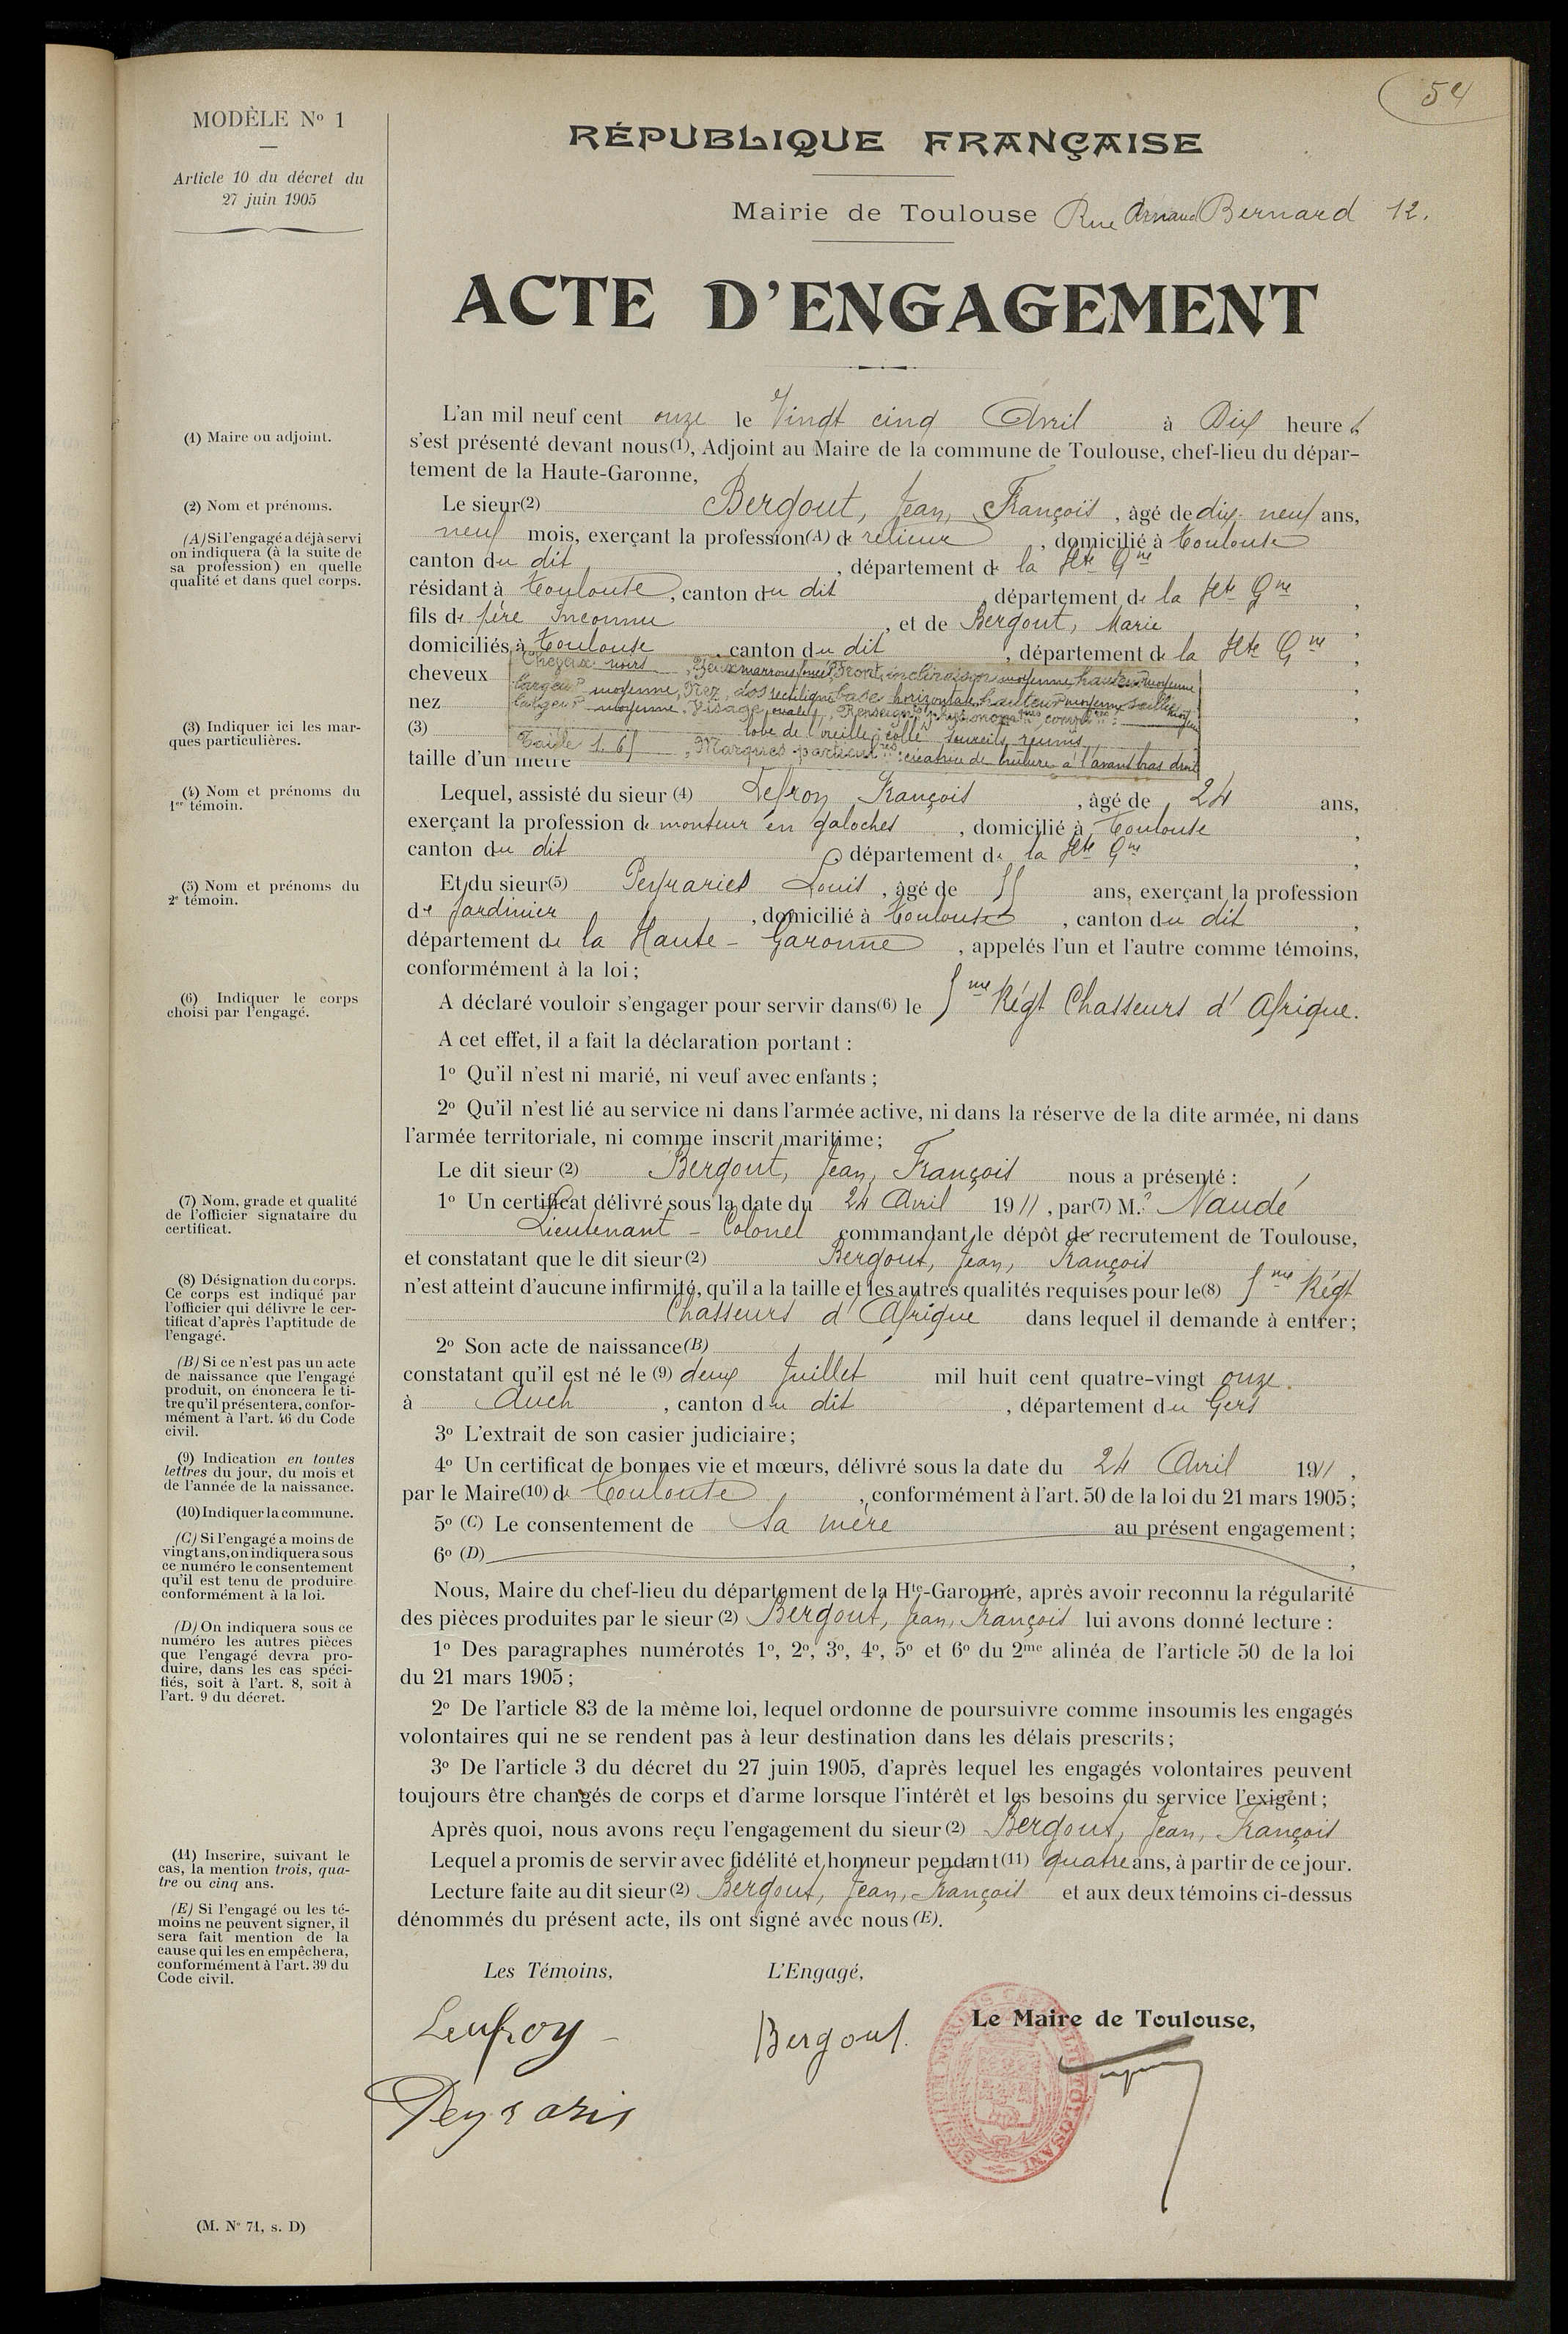 54
MODÈLE Nº 1
Article 10 du décret du
27 juin 1905
RÉPUBLIQUE FRANÇAISE
Mairie de Toulouse Rue Arnaud Bernard 12.
ACTE D'ENGAGEMENT
L'an mil neuf cent onze le Vingt cinq Avril à Dix heures
(1) Maire ou adjoint.
s'est présenté devant nous(1), Adjoint au Maire de la commune de Toulouse, chef-lieu du dépar-
tement de la Haute-Garonne,
(2) Nom et prénoms.
Le sieur(2) Bergout, Jean, François, âgé de dix-neuf ans,
(A) Si l'engagé a déjà servi
on indiquera (à la suite de
sa profession) en quelle
qualité et dans quel corps.
neuf mois, exerçant la profession(A) de relieur, domicilié à Toulouse
canton du dit, département de la Hte Gne
résidant à Toulouse, canton du dit, département de la Hte Gne,
fils de père Inconnu, et de Bergout, Marie,
domiciliés à Toulouse, canton du dit, département de la Hte Gne,
cheveux
nez
(3)
taille d'un mètre
Cheveux noirs, Yeux marrons foncé, Front, inclinaison moyenne, hauteur moyenne
largeur moyenne, Nez, dos rectiligne base horizontale hauteur moyenne saillie moyen
largeur moyenne. Visage ovale,
lobe de l'oreille collé sourcils réunis
Taille 1.65, Marques particulres: cicatrice de brûlure à l'avant bras droit
(3) Indiquer ici les mar-
ques particulières.
(4) Nom et prénoms du
1er témoin.
Lequel, assisté du sieur (4) Lefroy François, âgé de 24 ans,
exerçant la profession de monteur en galoches, domicilié à Toulouse,
canton du dit, département de la Hte Gne,
(5) Nom et prénoms du
2e témoin.
Et du sieur(5) Peyraries Louis, âgé de 55 ans, exerçant la profession
de Jardinier, domicilié à Toulouse, canton du dit,
département de la Haute-Garonne, appelés l'un et l'autre comme témoins,
conformément à la loi;
(6) Indiquer le corps
choisi par l'engagé.
A déclaré vouloir s'engager pour servir dans(6) le 5me Régt Chasseurs d'Afrique.
A cet effet, il a fait la déclaration portant :
1º Qu'il n'est ni marié, ni veuf avec enfants ;
2º Qu'il n'est lié au service ni dans l'armée active, ni dans la réserve de la dite armée, ni dans
l'armée territoriale, ni comme inscrit maritime;
Le dit sieur (2) Bergout, Jean, François nous a présenté :
(7) Nom, grade et qualité
de l'officier signataire du
certificat.
1º Un certificat délivré sous la date du 24 Avril 1911, par(7) M. Naudé
Lieutenant-Colonel commandant le dépôt de recrutement de Toulouse,
et constatant que le dit sieur(2) Bergout, Jean, François
(8) Désignation du corps.
Ce corps est indiqué par
l'officier qui délivre le cer-
tificat d'après l'aptitude de
l'engagé.
n'est atteint d'aucune infirmité, qu'il a la taille et les autres qualités requises pour le(8) 5me Régt
Chasseurs d'Afrique dans lequel il demande à entrer;
2º Son acte de naissance(B)
(B) Si ce n'est pas un acte
de naissance que l'engagé
produit, on énoncera le ti-
tre qu'il présentera, confor-
mément à l'art. 46 du Code
civil.
constatant qu'il est né le (9) deux Juillet mil huit cent quatre-vingt onze.
à Auch, canton du dit, département du Gers
3º L'extrait de son casier judiciaire;
(9) Indication en toutes
lettres du jour, du mois et
de l'année de la naissance.
4º Un certificat de bonnes vie et mœurs, délivré sous la date du 24 Avril 1911,
(10) Indiquer la commune.
par le Maire(10) de Toulouse, conformément à l'art. 50 de la loi du 21 mars 1905;
(C) Si l'engagé a moins de
vingt ans, on indiquera sous
ce numéro le consentement
qu'il est tenu de produire
conformément à la loi.
5º (C) Le consentement de sa mère au présent engagement;
6º (D),
Nous, Maire du chef-lieu du département de la Hte-Garonne, après avoir reconnu la régularité
des pièces produites par le sieur (2) Bergout, Jean, François lui avons donné lecture :
(D) On indiquera sous ce
numéro les autres pièces
que l'engagé devra pro-
duire, dans les cas spéci-
fiés, soit à l'art. 8, soit à
l'art. 9 du décret.
1º Des paragraphes numérotés 1º, 2º, 3º, 4º, 5º et 6º du 2me alinéa de l'article 50 de la loi
du 21 mars 1905;
2º De l'article 83 de la même loi, lequel ordonne de poursuivre comme insoumis les engagés
volontaires qui ne se rendent pas à leur destination dans les délais prescrits;
3º De l'article 3 du décret du 27 juin 1905, d'après lequel les engagés volontaires peuvent
toujours être changés de corps et d'arme lorsque l'intérêt et les besoins du service l'exigent;
Après quoi, nous avons reçu l'engagement du sieur(2) Bergout, Jean, François
(11) Inscrire, suivant le
cas, la mention trois, qua-
tre ou cinq ans.
Lequel a promis de servir avec fidélité et honneur pendant(11) quatre ans, à partir de ce jour.
Lecture faite au dit sieur(2) Bergout, Jean, François et aux deux témoins ci-dessus
dénommés du présent acte, ils ont signé avec nous (E).
(E) Si l'engagé ou les té-
moins ne peuvent signer, il
sera fait mention de la
cause qui les en empêchera,
conformément à l'art. 39 du
Code civil.
Les Témoins,
L'Engagé,
Le Maire de Toulouse,
Leufroy
Bergout.
Peyraris
(M. Nº 71, s. D)